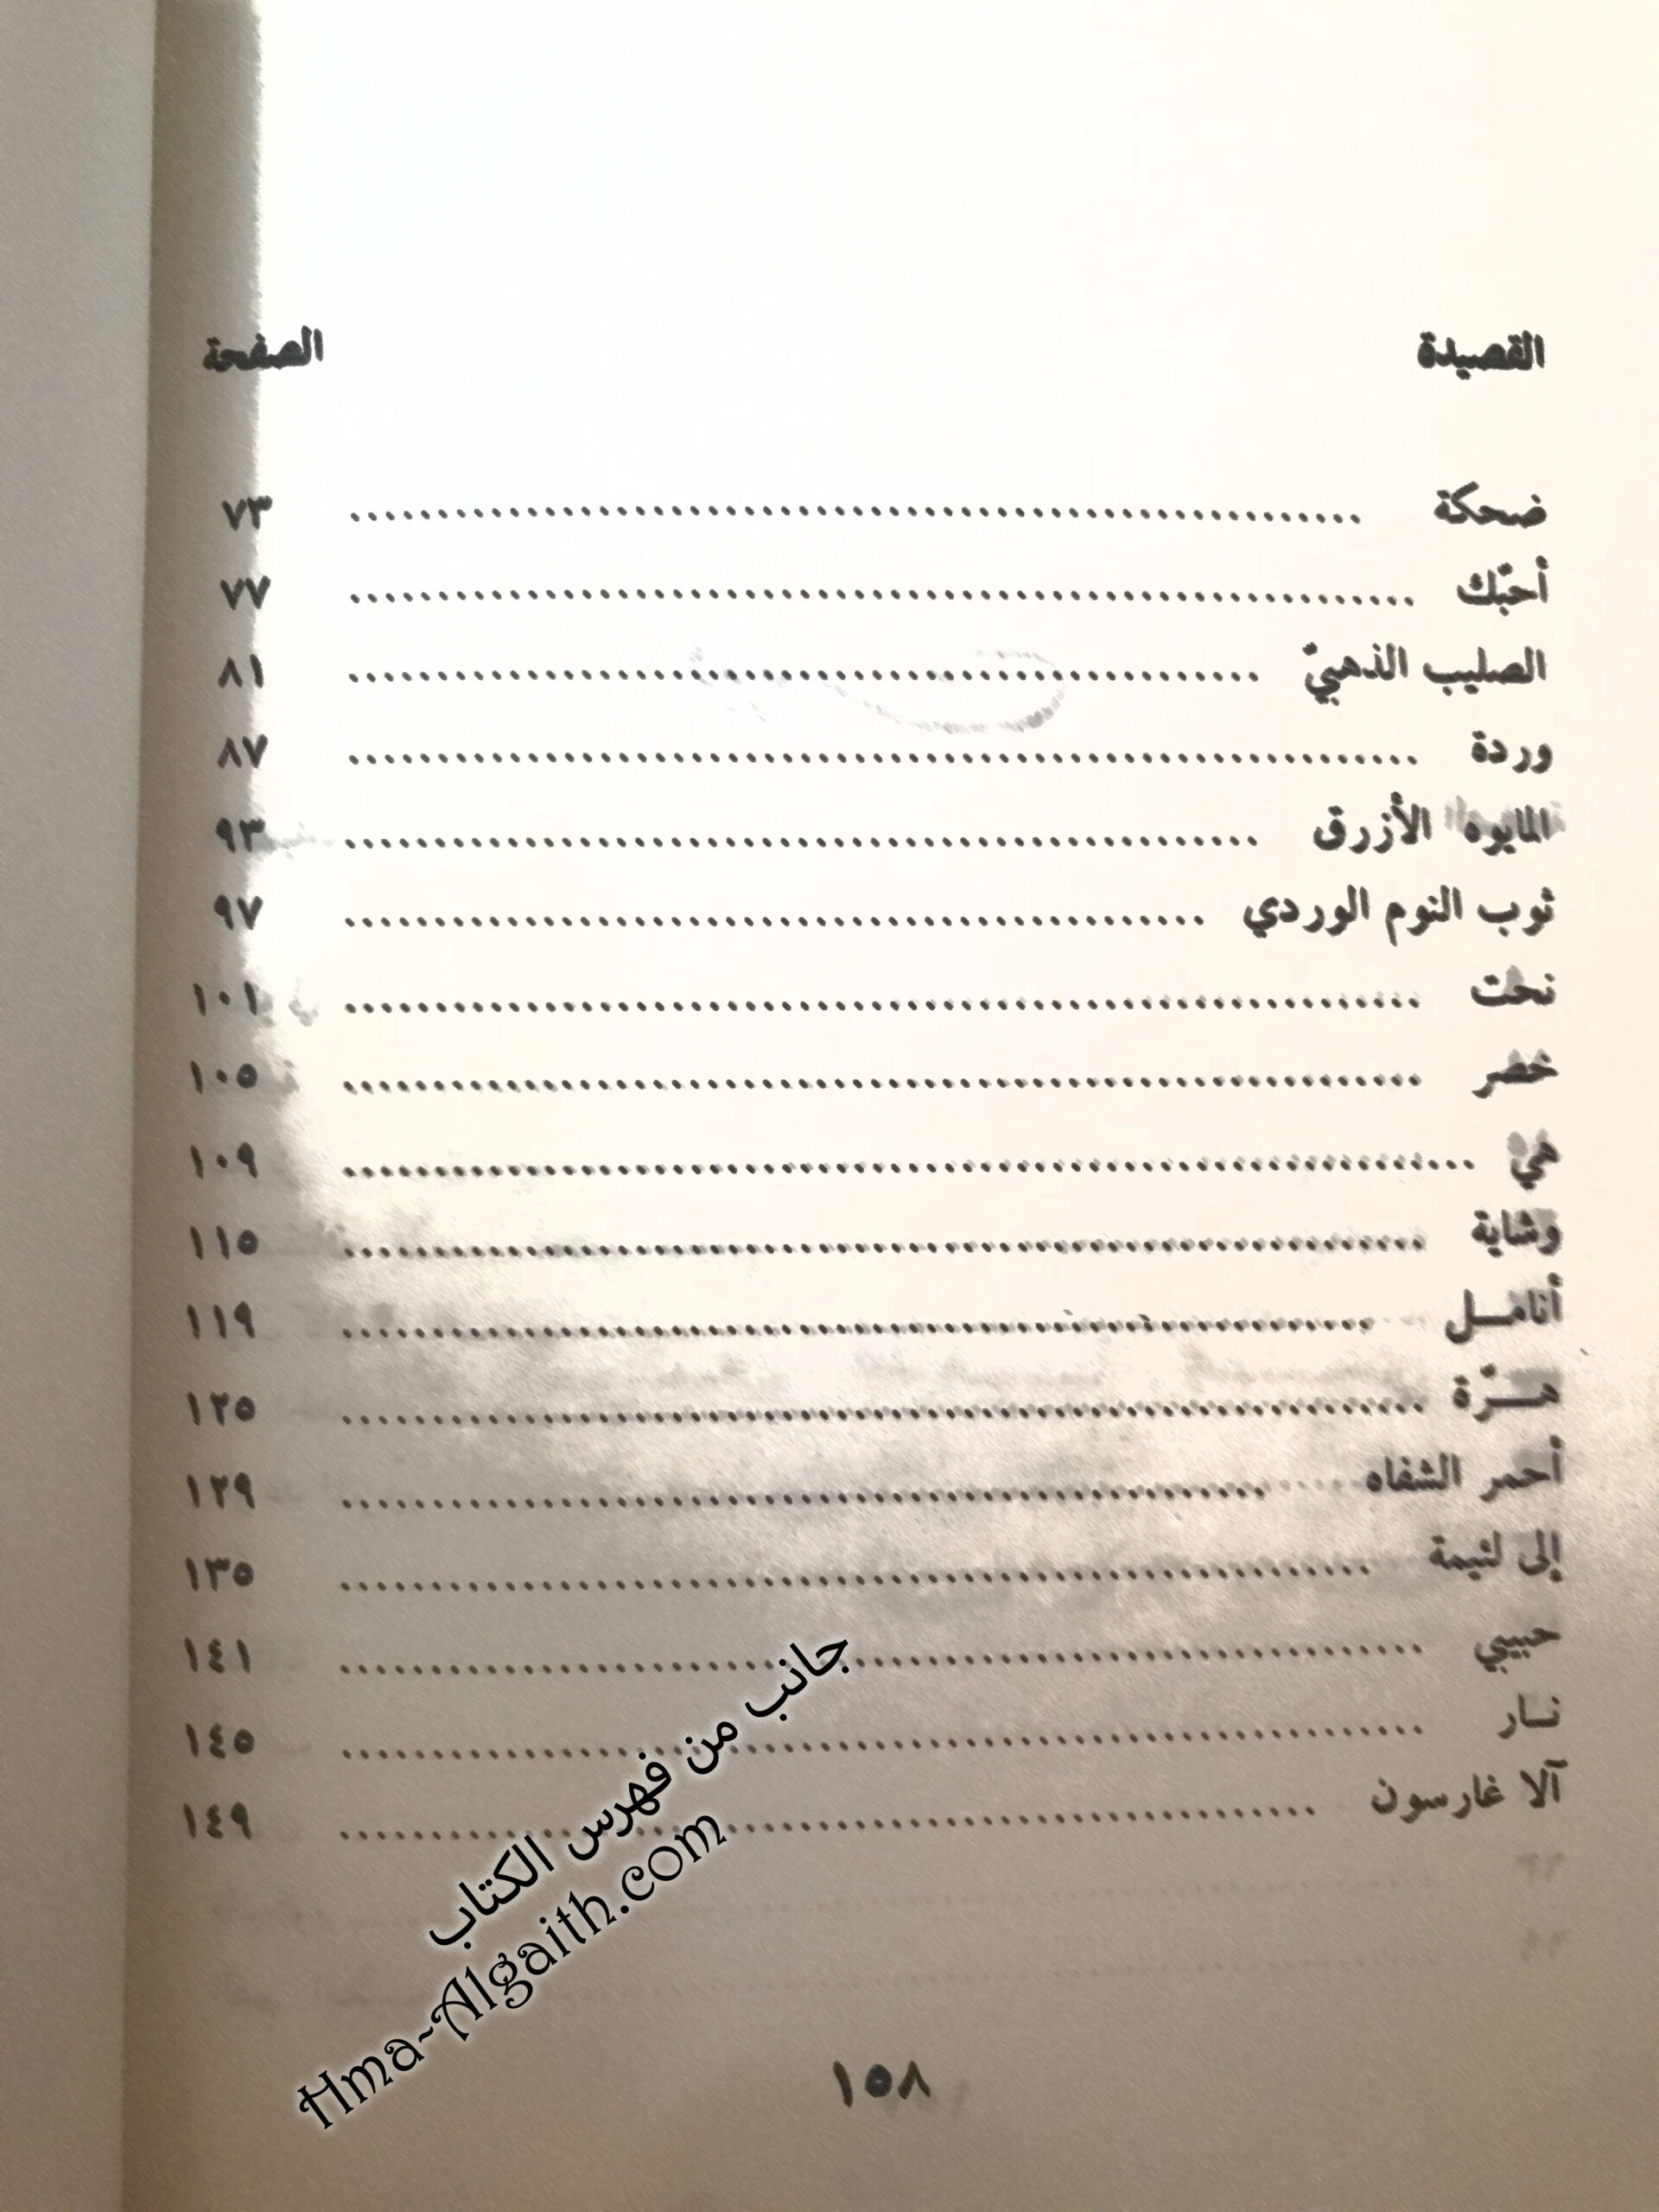 القصيدة الصفحة
ضحكة ........ ٧٣
أحبّك ........ ٧٧
الصليب الذهبيّ ........ ٨١
وردة ........ ٨٧
المايوه الأزرق ........ ٩٣
ثوب النوم الوردي ........ ٩٧
نحت ........ ١٠١
خصر ........ ١٠٥
هي ........ ١٠٩
وشاية ........ ١١٥
أنامــل ........ ١١٩
هــرّة ........ ١٢٥
أحمر الشفاه ........ ١٢٩
إلى لئيمة ........ ١٣٥
حبيبي ........ ١٤١
نــار ........ ١٤٥
آلا غارسون ........ ١٤٩
جانب من فهرس الكتاب
Hma~Algaith.com
١٥٨